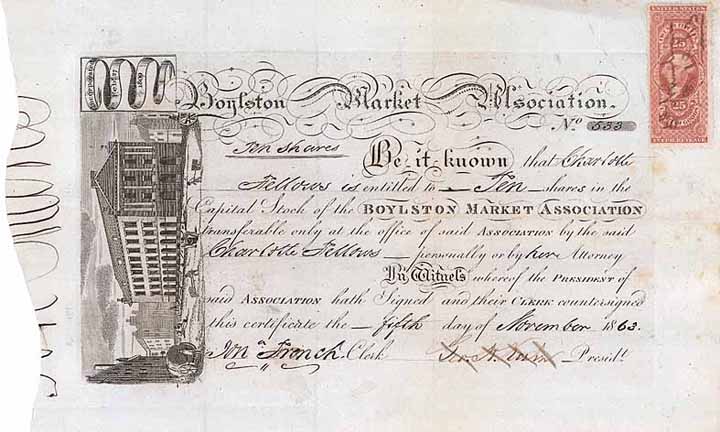 Boylston Market Association.
No 533
Ten shares
Be it known that Charlotte
Fellows is entitled to Ten shares in the
Capital Stock of the BOYLSTON MARKET ASSOCIATION
transferable only at the office of said ASSOCIATION by the said
Charlotte Fellows personally or by her Attorney
In Witness whereof the PRESIDENT of
said ASSOCIATION hath Signed and their CLERK countersigned
this certificate the fifth day of November 1863.
Jona French Clerk Presidt.
25 25